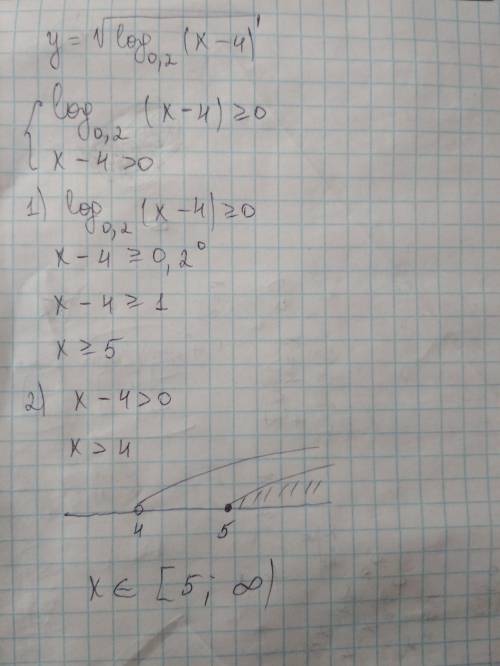 y = √log₀,₂ (x − 4)
{ log₀,₂ (x − 4) ≥ 0
x − 4 > 0
1) log₀,₂ (x − 4) ≥ 0
x − 4 ≥ 0,2⁰
x − 4 ≥ 1
x ≥ 5
2) x − 4 > 0
x > 4
4 5
x ∈ [5; ∞)